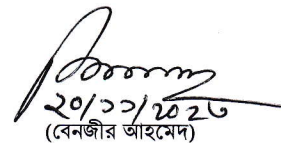 ২০/১১/২০২৩
(বেনজীর আহমেদ)